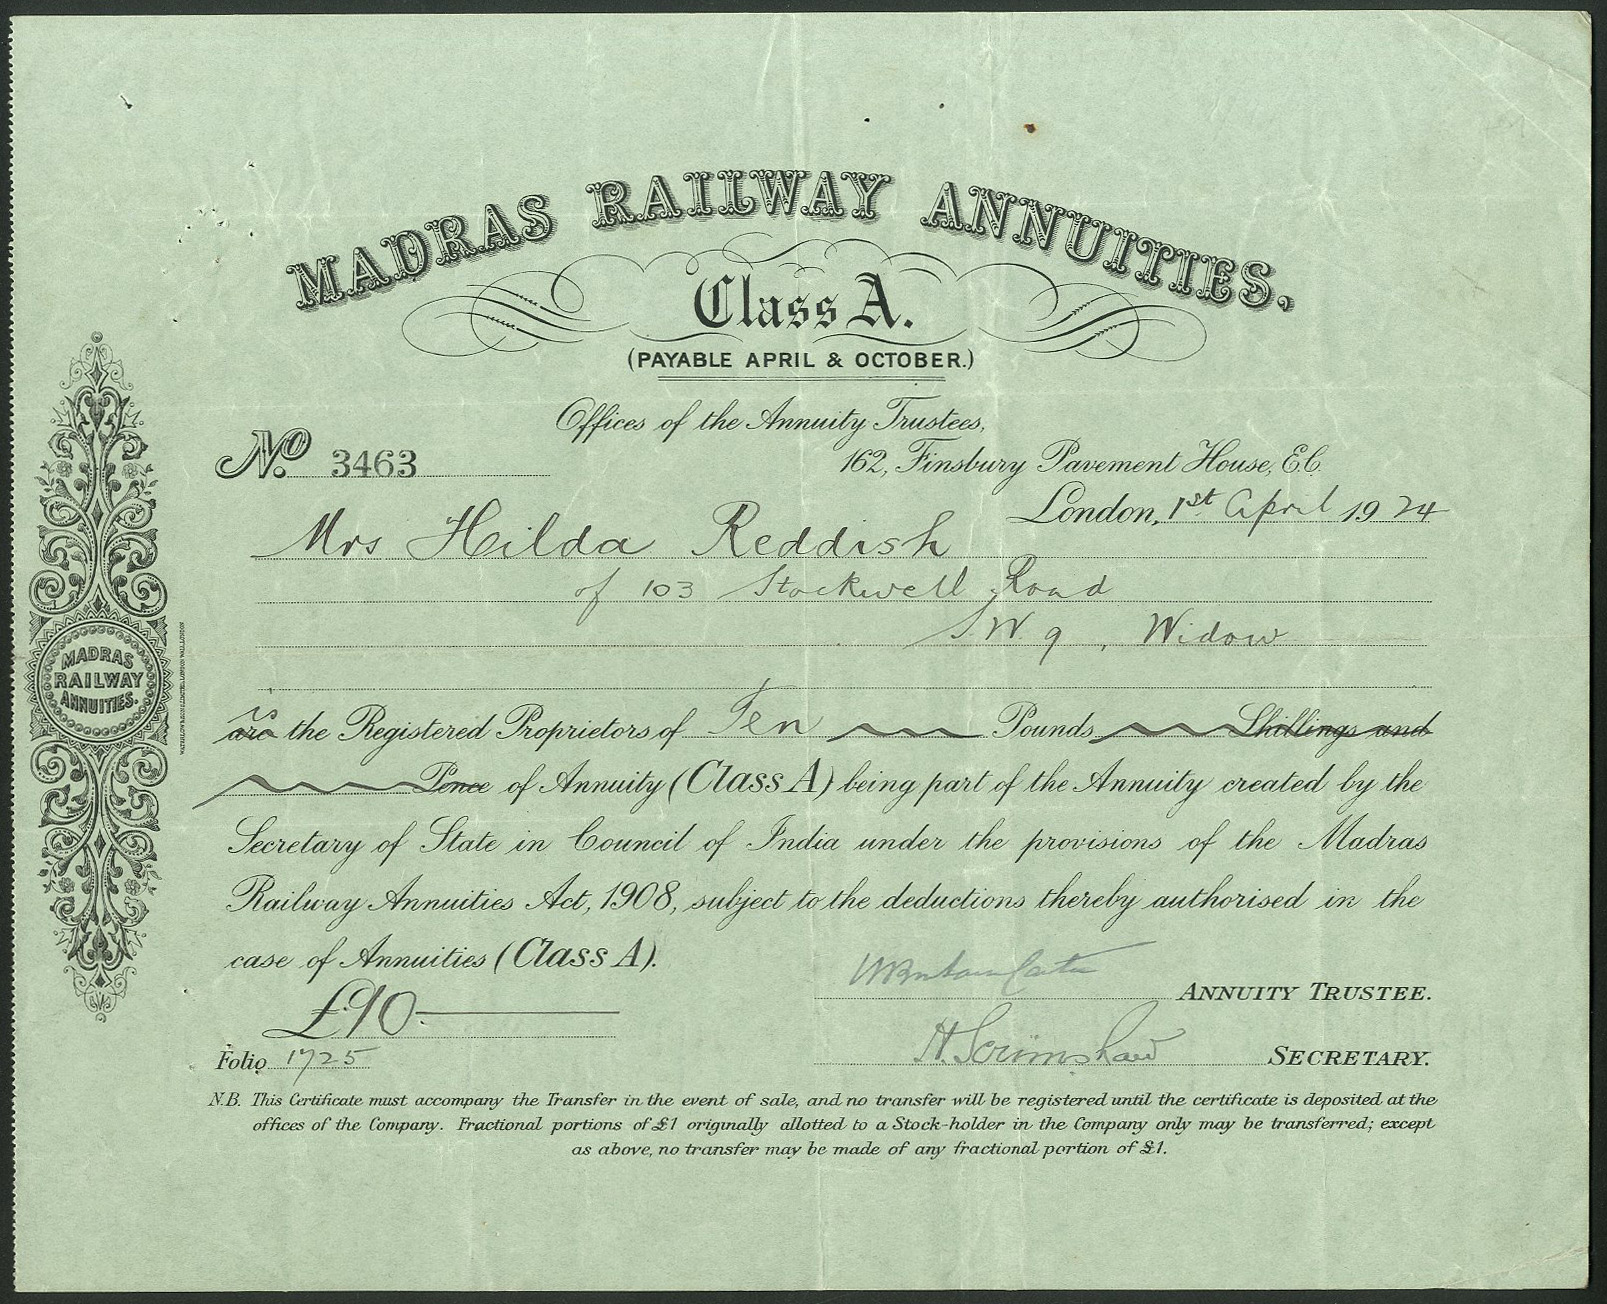 MADRAS RAILWAY ANNUITIES.
Class A.
(PAYABLE APRIL & OCTOBER.)
Offices of the Annuity Trustees,
No. 3463
162, Finsbury Pavement House, E.C.
London, 1st April 1924
Mrs Hilda Reddish
of 103 Stockwell Road
S.W. 9, Widow
is
are the Registered Proprietors of Ten Pounds Shillings and
Pence of Annuity (Class A) being part of the Annuity created by the
Secretary of State in Council of India under the provisions of the Madras
Railway Annuities Act, 1908, subject to the deductions thereby authorised in the
case of Annuities (Class A).
ANNUITY TRUSTEE.
£10
H. Scrimshaw SECRETARY.
Folio 1725
N.B. This Certificate must accompany the Transfer in the event of sale, and no transfer will be registered until the certificate is deposited at the
offices of the Company. Fractional portions of £1 originally allotted to a Stock-holder in the Company only may be transferred; except
as above, no transfer may be made of any fractional portion of £1.
MADRAS
RAILWAY
ANNUITIES.